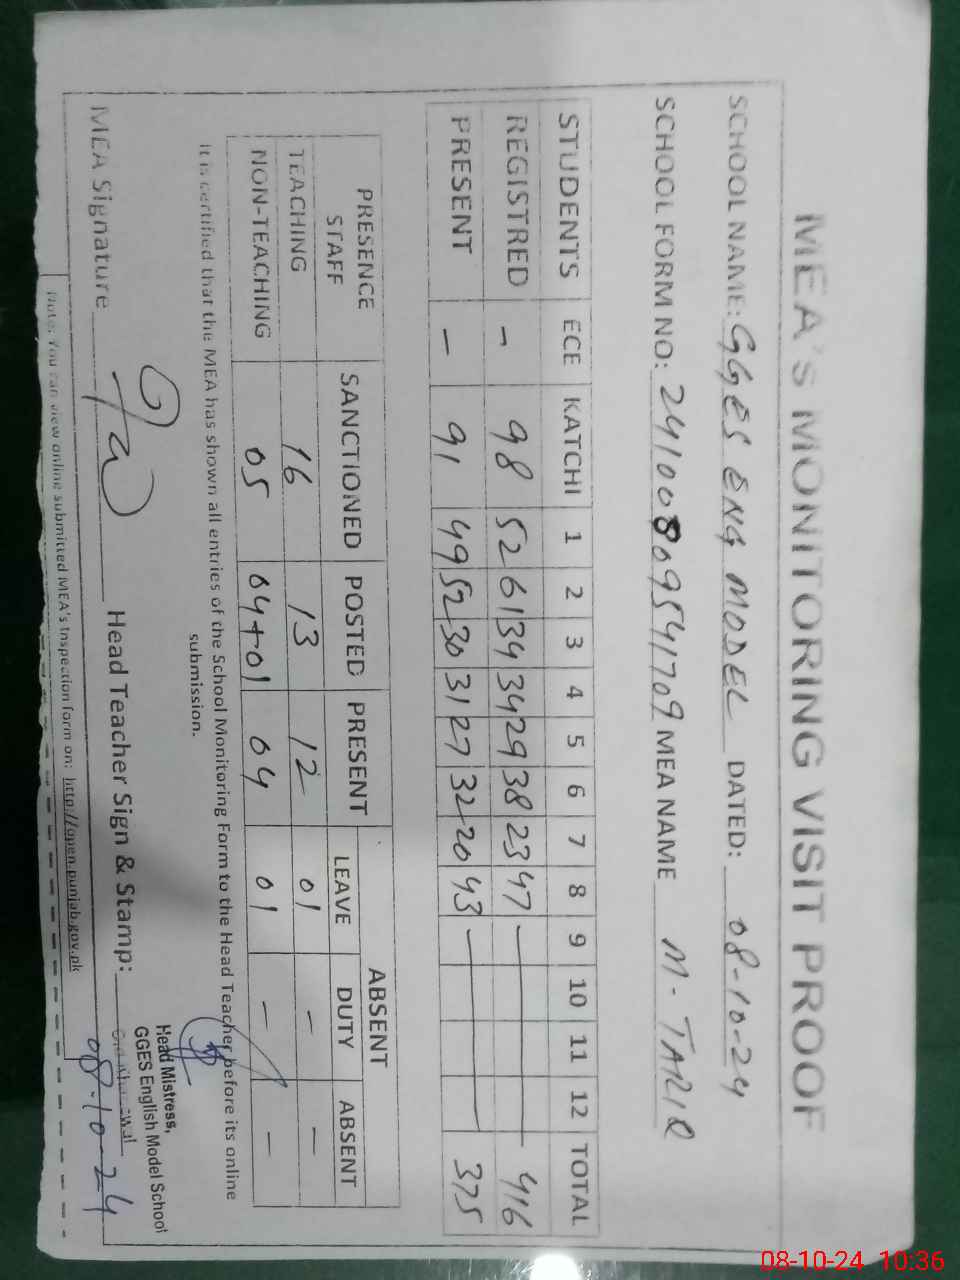 MEA'S MONITORING VISIT PROOF
SCHOOL NAME: GGES ENG MODEL DATED: 08-10-24
SCHOOL FORM NO: 24100809541709 MEA NAME M- TARIQ
STUDENTS ECE KATCHI 1 2 3 4 5 6 7 8 9 10 11 12 TOTAL
REGISTRED - 98 52 61 34 34 29 38 23 47 416
PRESENT - 91 49 52 30 31 27 32 20 43 375
PRESENCE STAFF SANCTIONED POSTED PRESENT ABSENT
LEAVE DUTY ABSENT
TEACHING 16 13 12 01 - -
NON-TEACHING 05 04+01 04 01 - -
It is certified that the MEA has shown all entries of the School Monitoring Form to the Head Teacher before its online
submission.
MEA Signature Head Teacher Sign & Stamp:
Head Mistress,
GGES English Model School
08-10-24
Note: You can view online submitted MEA's Inspection form on: http://open.punjab.gov.pk
08-10-24 10:36